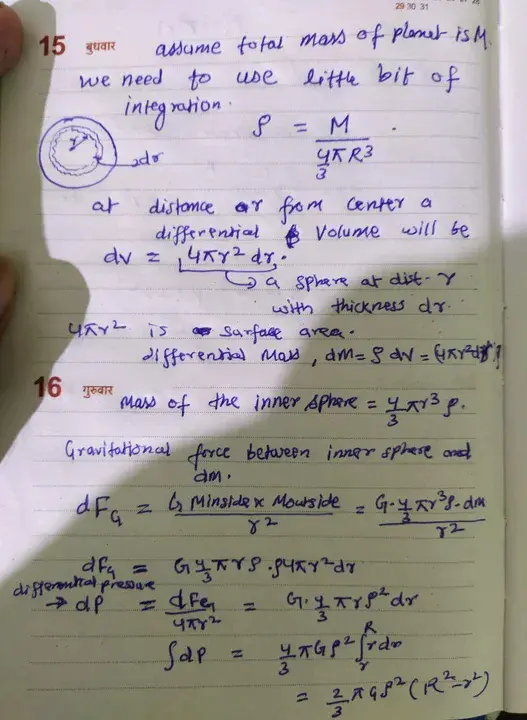 29 30 31
15 बुधवार assume total mass of planet is M.
we need to use little bit of
integration.
ρ = M / (4/3 π R³) .
r
dr
at distance r from center a
differential volume will be
dv = 4πr² dr.
→ a sphere at dist- r
with thickness dr.
4πr² is surface area.
differential mass, dM = ρ dv = (4πr²dr)ρ
16 गुरुवार mass of the inner sphere = 4/3 πr³ ρ.
Gravitational force between inner sphere and
dm.
dF_G = G Minside x Moutside / r² = G · 4/3 πr³ρ · dm / r²
dF_G = G 4/3 πrρ · ρ4πr²dr
differential pressure
→ dP = dF_G / 4πr² = G · 4/3 πrρ² dr
∫dP = 4/3 πGρ² ∫_r^R r dr
= 2/3 πGρ² (R²-r²)